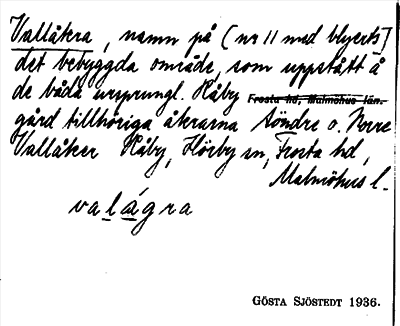 Vallåkra, namn på (nr 11 med blyerts)
det bebyggda område, som uppstått å
de båda ursprungl. Råby Frosta hd, Malmöhus län.
gård tillhöriga åkrarna Söndre o. Norre
Vallåker Råby, Hörby sn, Frosta hd,
Malmöhus l.
valágra
GÖSTA SJÖSTEDT 1936.